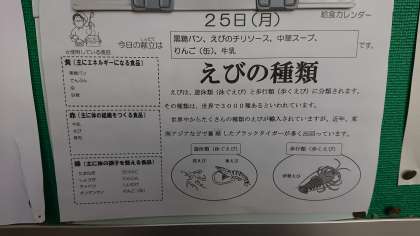 25日(月)
給食カレンダー
今日の献立は
黒糖パン、えびのチリソース、中華スープ、
りんご(缶)、牛乳 です。
が使用している食品
黄(主にエネルギーになる食品)
黒糖パン
でんぷん
油
砂糖
赤(主に体の組織をつくる食品)
牛乳
えび
えびの種類
えびは、遊泳類(泳ぐえび)と歩行類(歩くえび)に分類されます。
その種類は、世界で3000種あるといわれています。
世界中からたくさんの種類のえびが輸入されていますが、近年、東
南アジアなどで養殖したブラックタイガーが多く出回っています。
緑(主に体の調子を整える食品)
たまねぎ
しょうが
チンゲンサイ
にんにく
にんじん
りんご(缶)
遊泳類(泳ぐえび)
歩行類(歩くえび)
伊勢えび